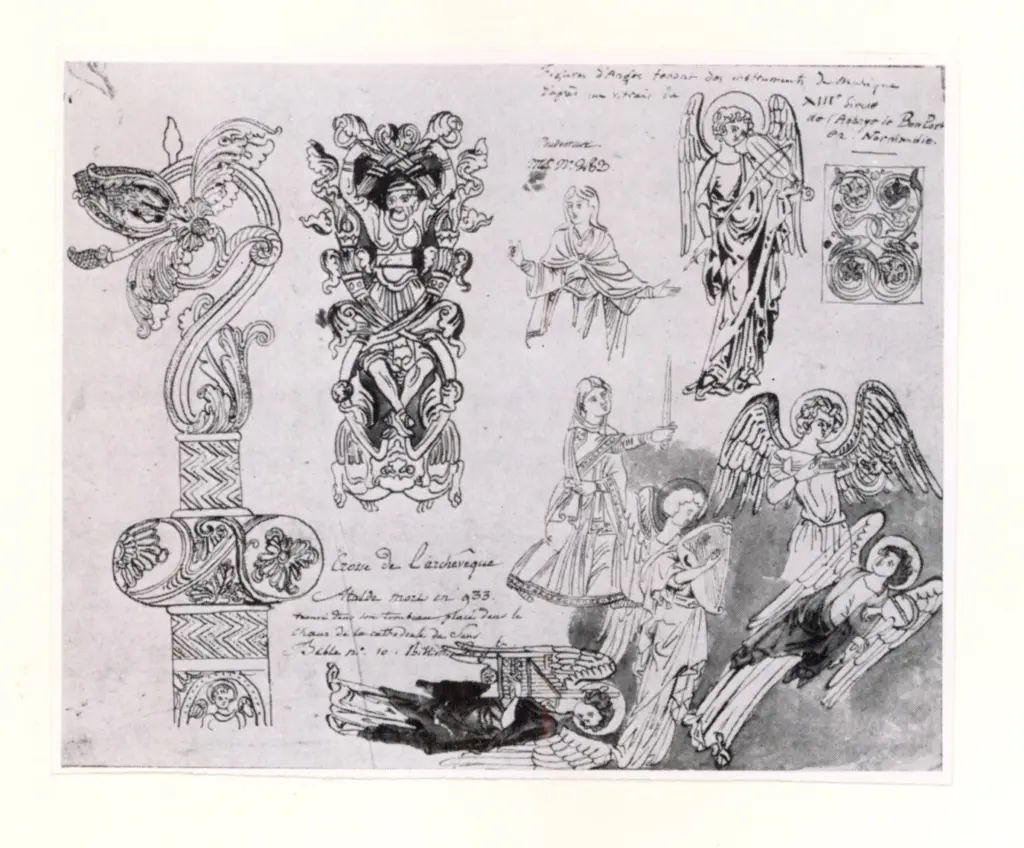 Figures d'Anges tenant des instruments de Musique
d'après un vitrail de
XIIIe Siecle
de l'Abbaye de Bon Port
en Normandie.
Mst. No.
Crosse de L'archevêque
Atalde mort en 933.
trouvé dans son tombeau placé dans le
Chœur de la cathedrale de Sens.
Bible no. 10.